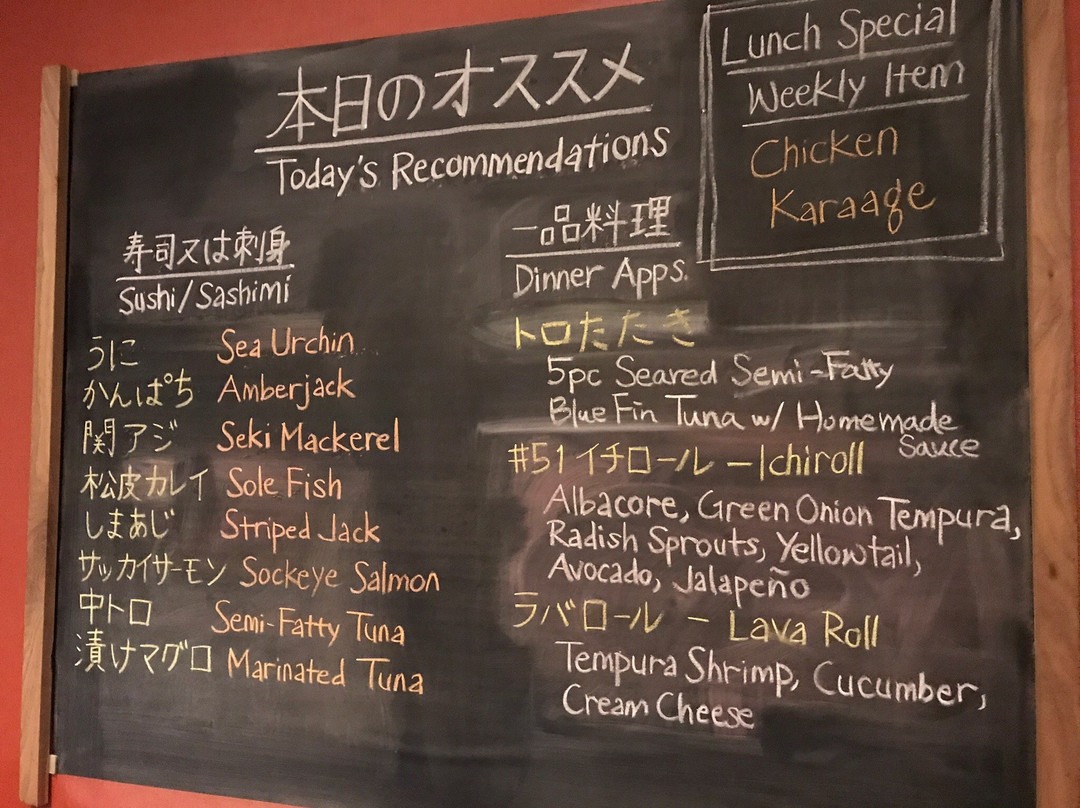 本日のオススメ
Today's Recommendations
Lunch Special
Weekly Item
Chicken
Karaage
寿司又は刺身
Sushi/Sashimi
うに Sea Urchin
かんぱち Amberjack
関アジ Seki Mackerel
松皮カレイ Sole Fish
しまあじ Striped Jack
サッカイサーモン Sockeye Salmon
中トロ Semi-Fatty Tuna
漬けマグロ Marinated Tuna
一品料理
Dinner Apps.
トロたたき
5pc Seared Semi-Fatty
Blue Fin Tuna w/ Homemade
Sauce
#51 イチロール - Ichiroll
Albacore, Green Onion Tempura,
Radish Sprouts, Yellowtail,
Avocado, Jalapeño
ラバロール - Lava Roll
Tempura Shrimp, Cucumber,
Cream Cheese